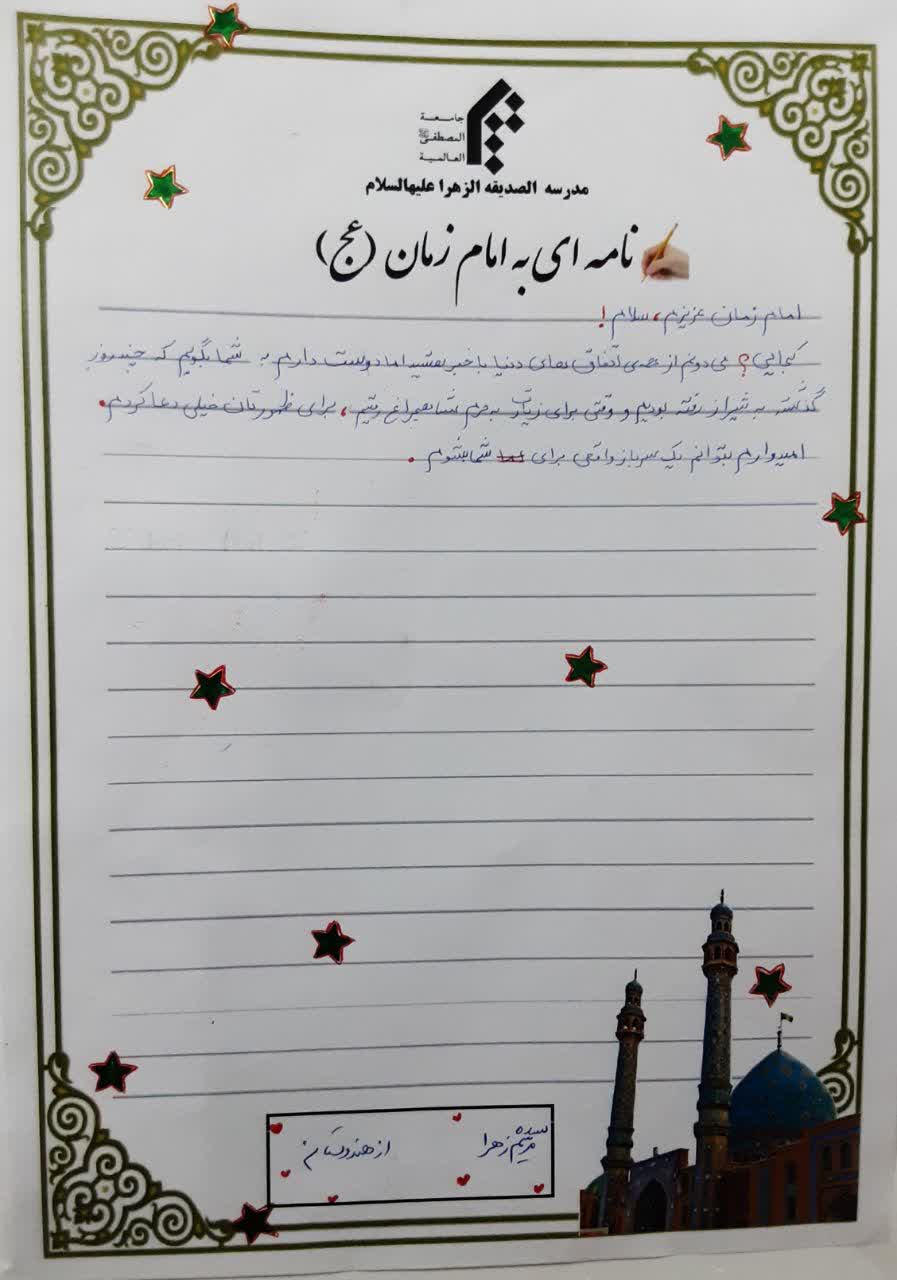 جامعة
المصطفی ﷺ
العالمیة
مدرسه الصدیقه الزهرا علیهاالسلام
نامه ای به امام زمان (عج)
امام زمان عزیزم، سلام!
کجایی؟ می دونم از همه ی اتفاق های دنیا با خبر هستید اما دوست دارم به شما بگویم که چند روز
گذشته به شیراز رفته بودیم و وقتی برای زیارت به حرم شاهچراغ رفتیم، برای ظهورتان خیلی دعا کردم.
امیدوارم بتوانم یک سرباز واقعی برای شما بشوم.
سیده مریم زهرا از هندوستان